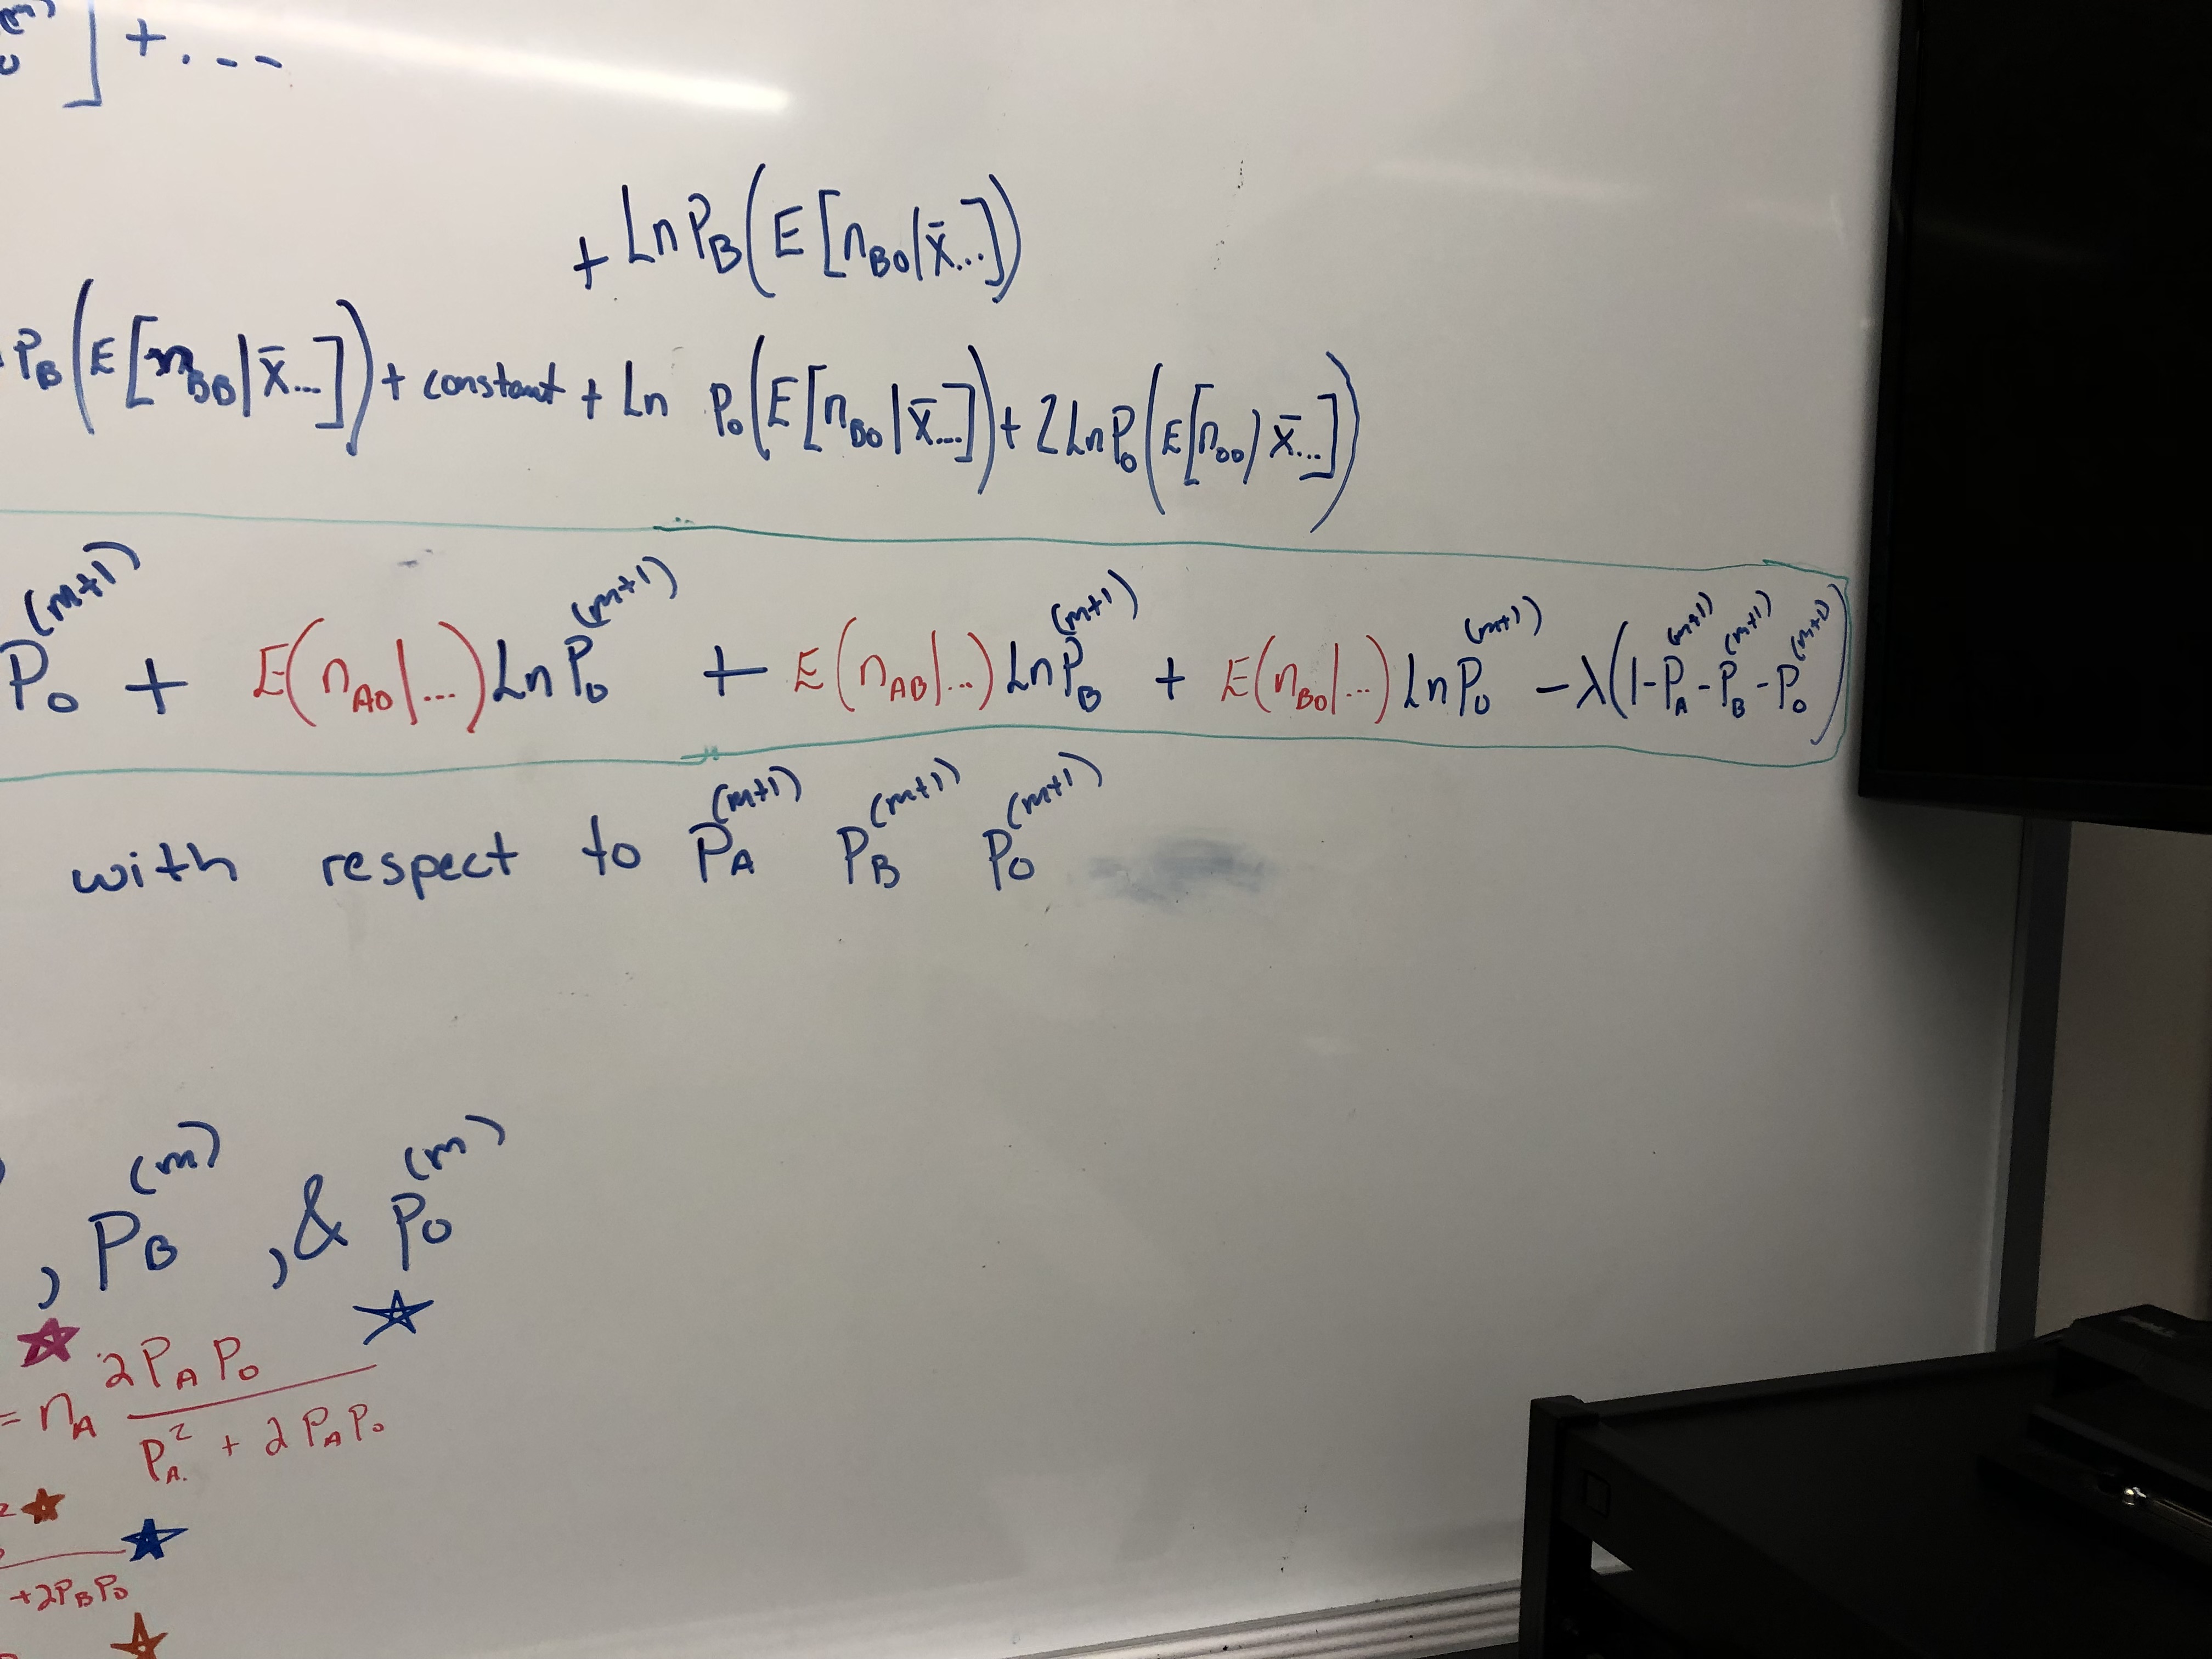 ] + ...
+ Ln P_B (E [n_BO | x̄...])
P_B (E [n_BB | x̄...]) + constant + Ln P_O (E [n_BO | x̄...]) + 2 Ln P_O (E [n_OO) x̄...])
P_O^(m+1) + E(n_AO|...) Ln P_O^(m+1) + E(n_AB|...) Ln P_B^(m+1) + E(n_BO|...) Ln P_O^(m+1) - λ(1 - P_A^(m+1) - P_B^(m+1) - P_O^(m+1))
with respect to P_A^(m+1) P_B^(m+1) P_O^(m+1)
, P_B^(m) , & P_O^(m)
2 P_A P_O
= n_A
P_A^2 + 2 P_A P_O
+2P_B P_O